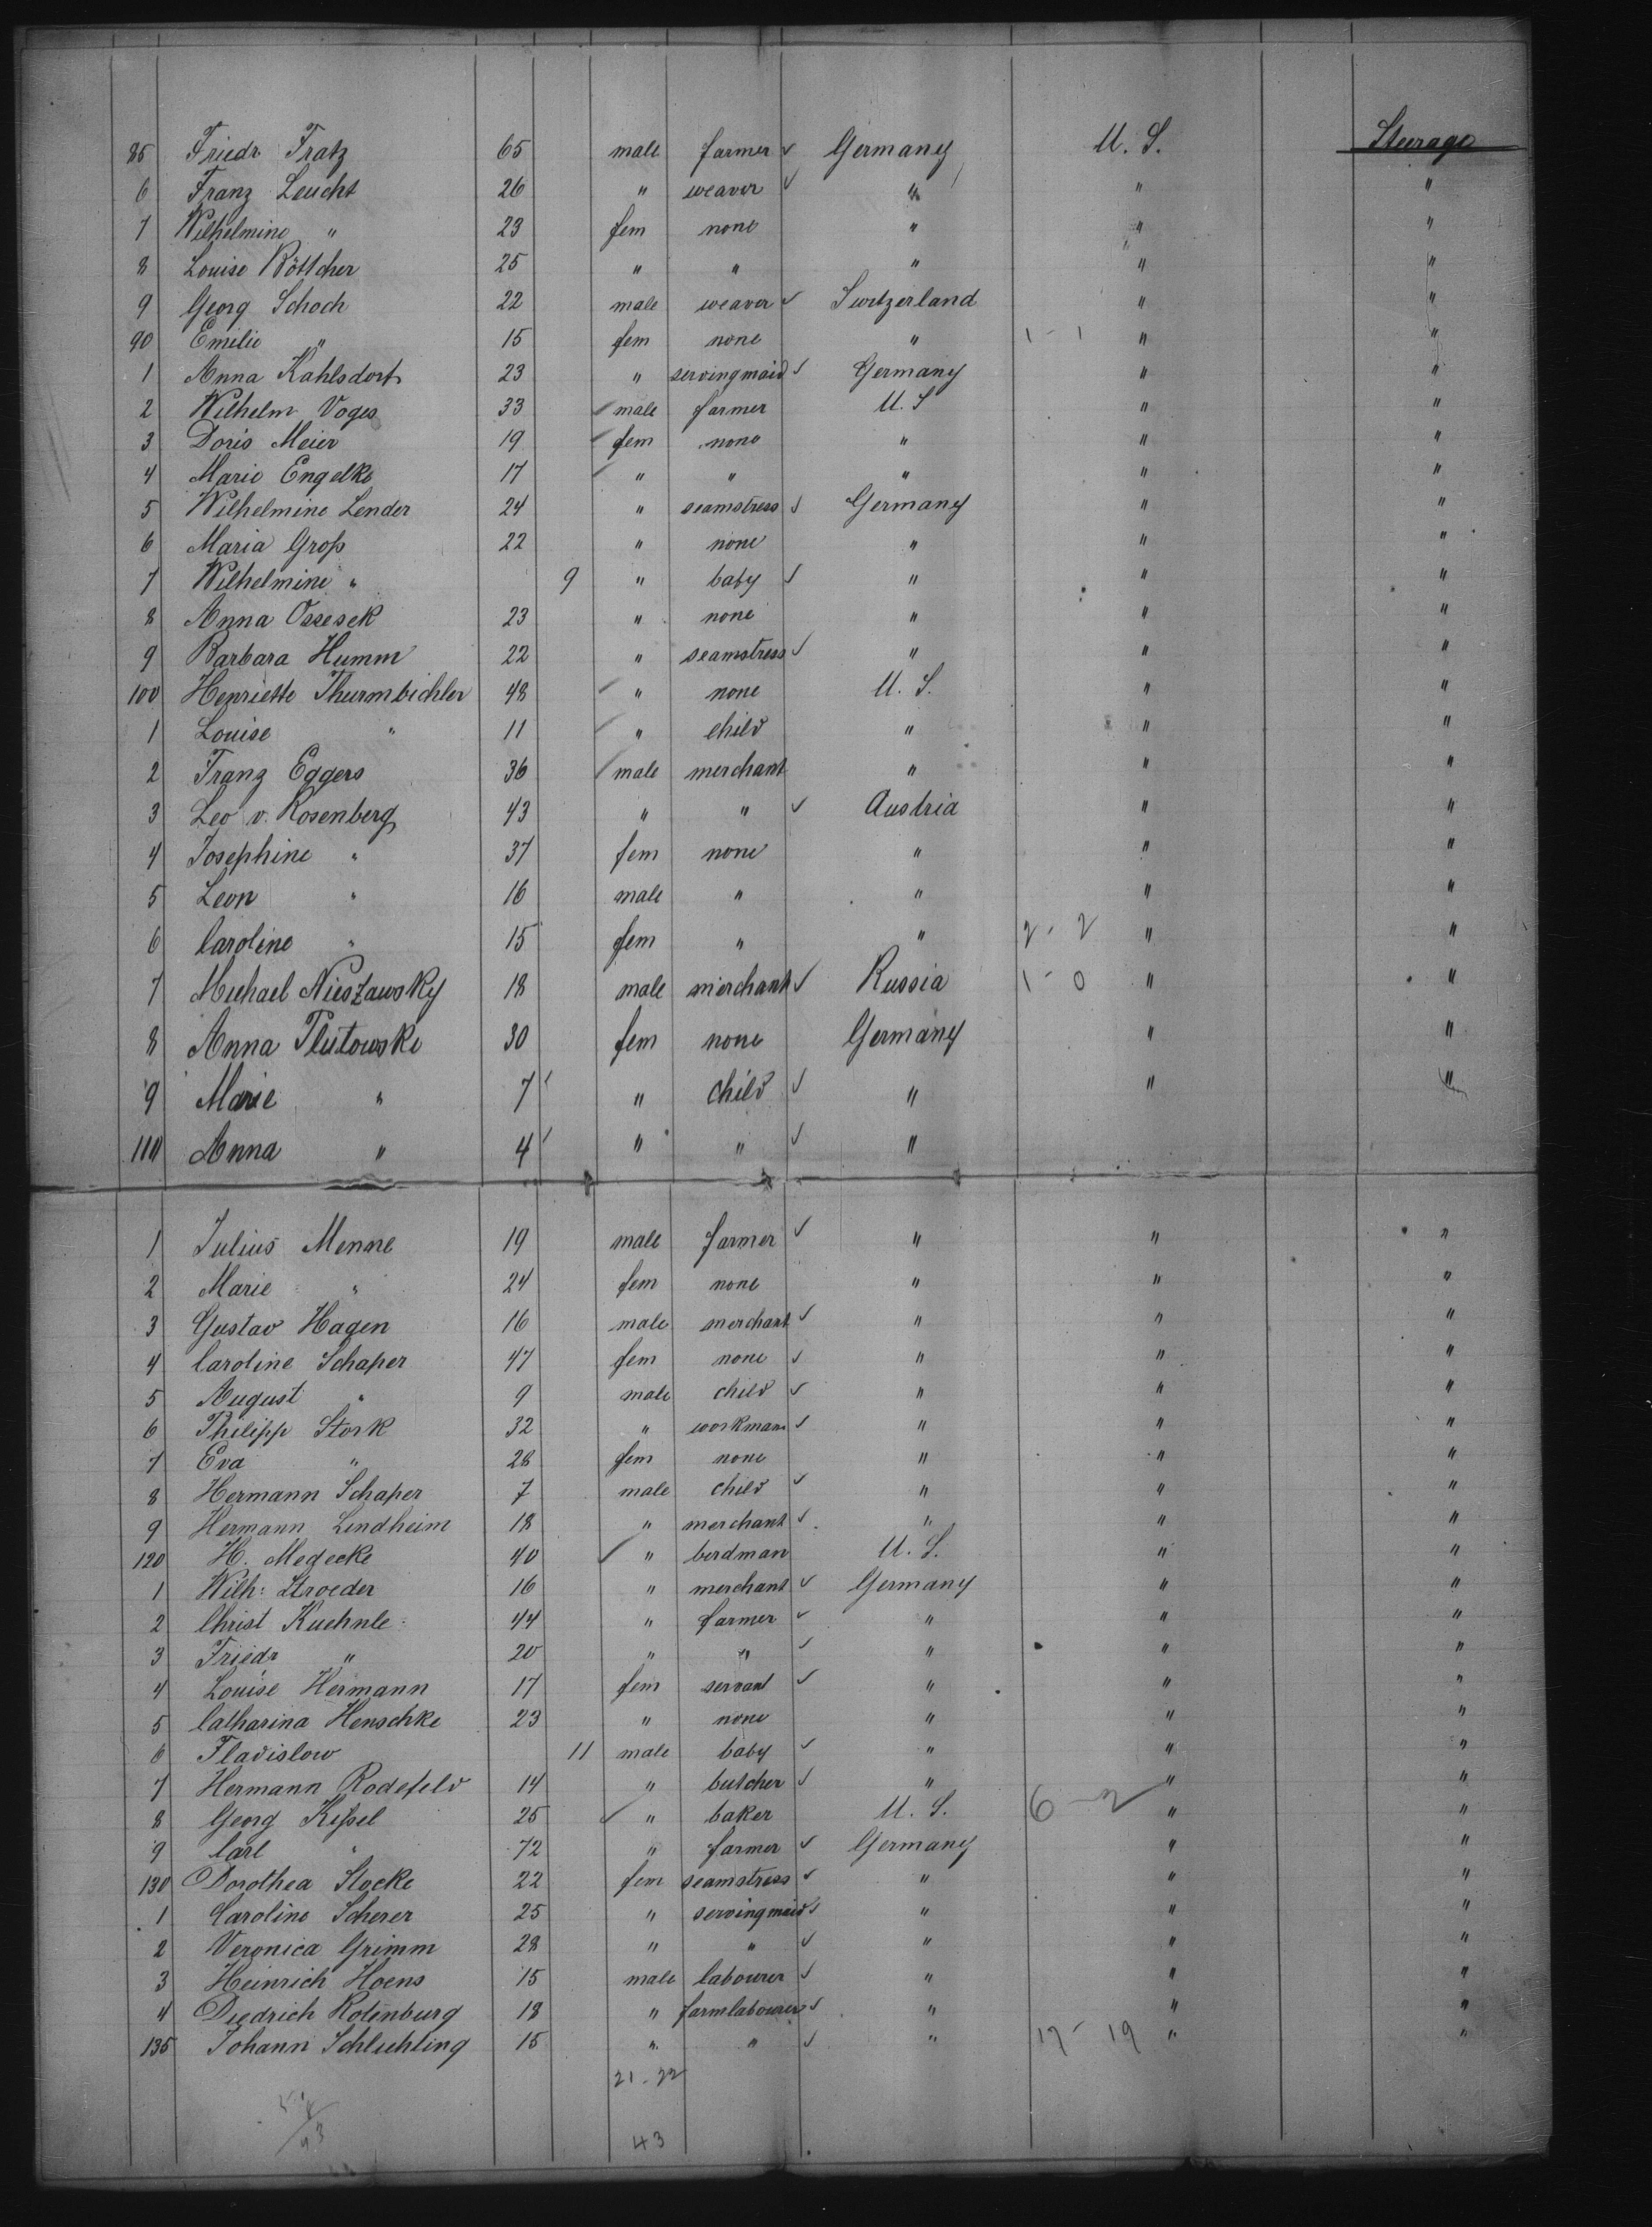 85 Friedr Fratz 65 male farmer ✓ Germany U. S. Steerage
6 Franz Leucht 26 " weaver ✓ " " "
7 Wilhelmine " 23 fem none " " "
8 Louise Böttcher 25 " " " " "
9 Georg Schoch 22 male weaver ✓ Switzerland " "
90 Emilie " 15 fem none " 1 - 1 " "
1 Anna Kahlsdorf 23 " servingmaid ✓ Germany " "
2 Wilhelm Voges 33 male farmer U. S " "
3 Doris Meier 19 fem none " " "
4 Marie Engelke 17 " " " " "
5 Wilhelmine Lender 24 " seamstress ✓ Germany " "
6 Maria Groß 22 " none " " "
7 Wilhelmine " 9 " baby ✓ " " "
8 Anna Ossesek 23 " none " " "
9 Barbara Humm 22 " seamstress ✓ " " "
100 Henriette Thurmbichler 48 " none U. S. " "
1 Louise " 11 " child " " "
2 Franz Eggers 36 male merchant " " "
3 Leo v. Rosenberg 43 " " ✓ Austria " "
4 Josephine " 37 fem none " " "
5 Leon " 16 male " " " "
6 Caroline " 15 fem " " 2 - 2 " "
7 Michael Nieszawsky 18 male merchant ✓ Russia 1 - 0 " "
8 Anna Plutowske 30 fem none Germany " "
9 Marie " 7 " child ✓ " " "
110 Anna " 4 " " ✓ "
1 Julius Menne 19 male farmer ✓ " " "
2 Marie " 24 fem none " " "
3 Gustav Hagen 16 male merchant ✓ " " "
4 Caroline Schaper 47 fem none ✓ " " "
5 August " 9 male child ✓ " " "
6 Philipp Stork 32 " workman ✓ " " "
7 Eva " 28 fem none " " "
8 Hermann Schaper 7 male child ✓ " " "
9 Hermann Lindheim 18 " merchant ✓ " " "
120 H. Medecke 40 ✓ " birdman U. S. " "
1 Wilh: Stroeder 16 " merchant ✓ Germany " "
2 Christ Kuehnle 44 " farmer ✓ " " "
3 Friedr " 20 " " ✓ " " "
4 Louise Hermann 17 fem servant ✓ " " "
5 Catharina Henschke 23 " none " " "
6 Fladislow 11 male baby ✓ " " "
7 Hermann Rodefeld 14 " butcher ✓ " " "
8 Georg Keßel 25 ✓ " baker U. S. 6 - 2 " "
9 Carl " 72 " farmer ✓ Germany " "
130 Dorothea Stocke 22 fem seamstress ✓ " " "
1 Caroline Scherer 25 " servingmaid ✓ " " "
2 Veronica Grimm 28 " " ✓ " " "
3 Heinrich Hoens 15 male labourer ✓ " " "
4 Diedrich Rotenburg 18 " farmlabourer ✓ " " "
135 Johann Schlichting 15 " " ✓ " 17 - 19 " "
21 - 22
43